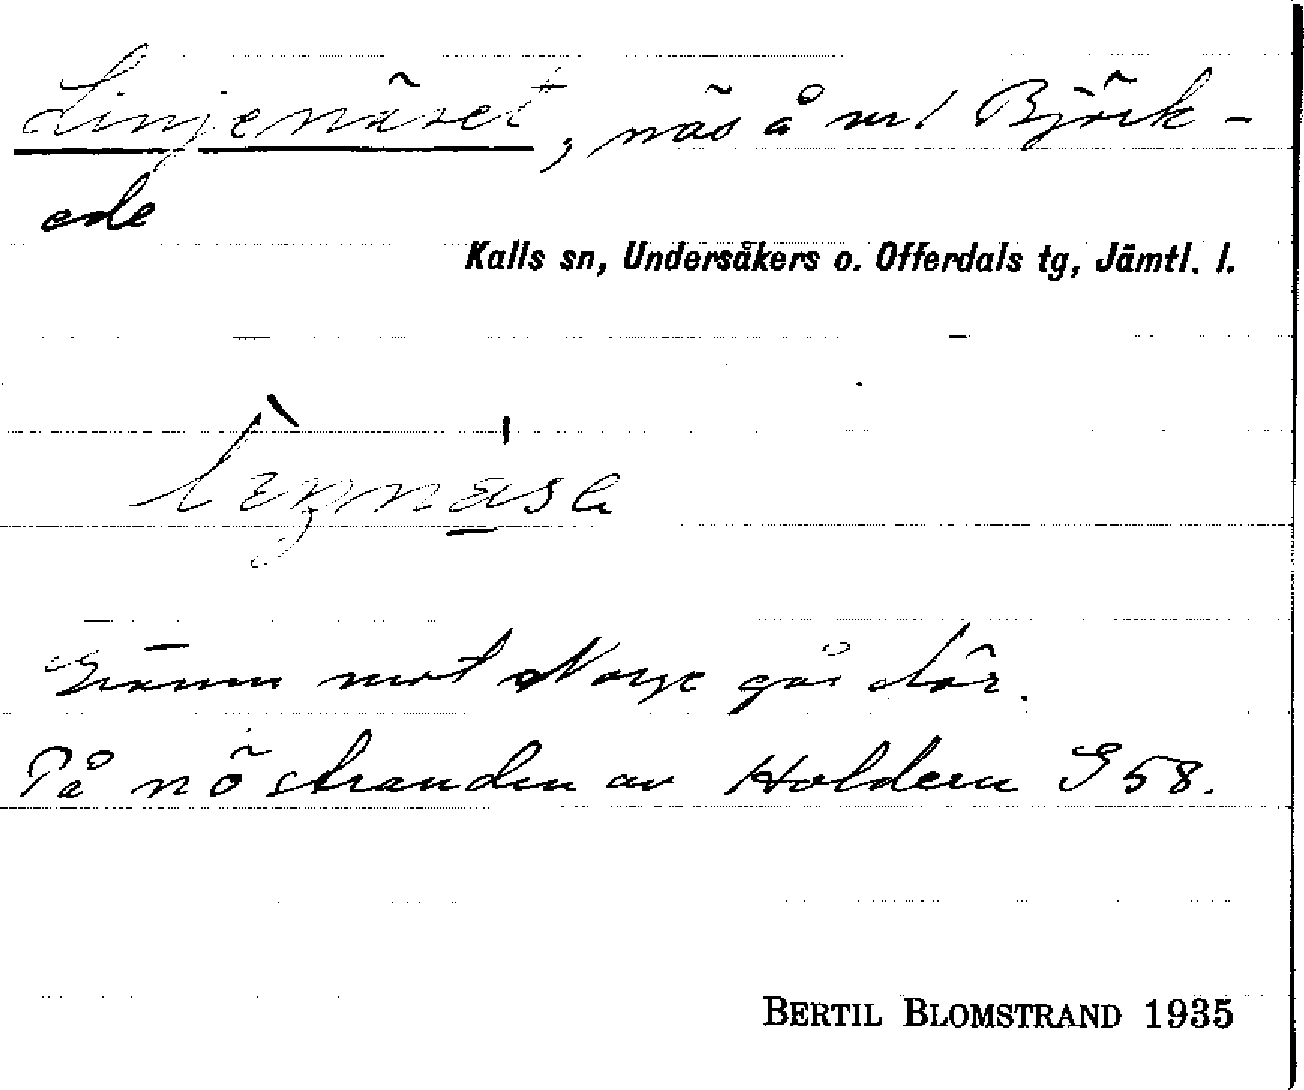 Linjenäset, näs å m/ Björk-
ede
Kalls sn, Undersåkers o. Offerdals tg, Jämtl. l.
Gränsen mot Norge går där.
På nö stranden av Holdern S 58.
BERTIL BLOMSTRAND 1935